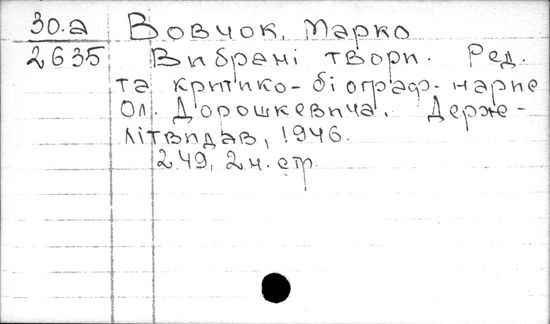 30.а Вовчок, Марко
2635 Вибрані твори. Ред.
та критико-біограф. нарис
Ол. Дорошкевича. Держ-
літвидав, 1946.
249, 2 н. стр.